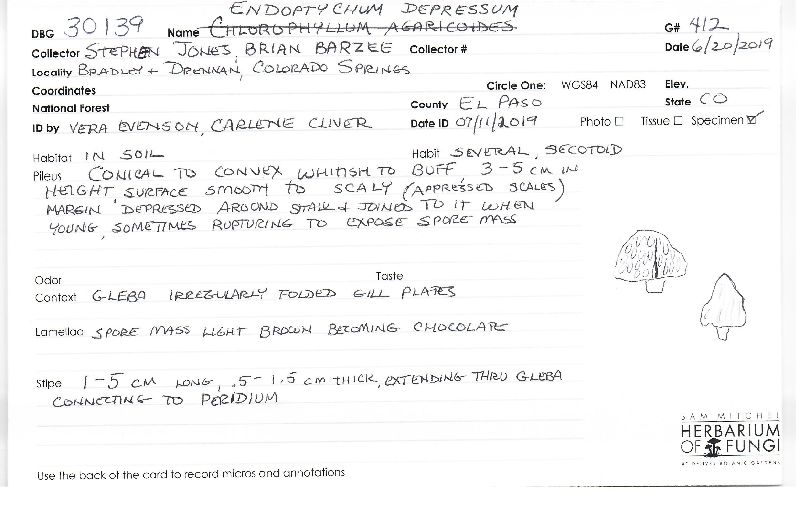 ENDOPTYCHUM DEPRESSUM
DBG 30139 Name CHLOROPHYLLUM AGARICOIDES G# 412
Collector STEPHEN JONES, BRIAN BARZEE Collector # Date 6/20/2019
Locality BRADLEY + DRENNAN, COLORADO SPRINGS
Coordinates Circle One: WGS84 NAD83 Elev.
National Forest County EL PASO State CO
ID by VERA EVENSON, CARLENE CLIVER Date ID 07/11/2019 Photo Tissue Specimen
Habitat IN SOIL Habit SEVERAL, SECOTOID
Pileus CONICAL TO CONVEX WHITISH TO BUFF, 3-5 CM IN
HEIGHT SURFACE SMOOTH TO SCALY (APPRESSED SCALES)
MARGIN DEPRESSED AROUND STALK + JOINED TO IT WHEN
YOUNG, SOMETIMES RUPTURING TO EXPOSE SPORE MASS
Odor Taste
Context GLEBA IRREGULARLY FOLDED GILL PLATES
Lamellae SPORE MASS LIGHT BROWN BECOMING CHOCOLATE
Stipe 1-5 CM LONG, .5-1.5 CM THICK, EXTENDING THRU GLEBA
CONNECTING TO PERIDIUM
SAM MITCHEL
HERBARIUM
OF FUNGI
AT DENVER BOTANIC GARDENS
Use the back of the card to record micros and annotations